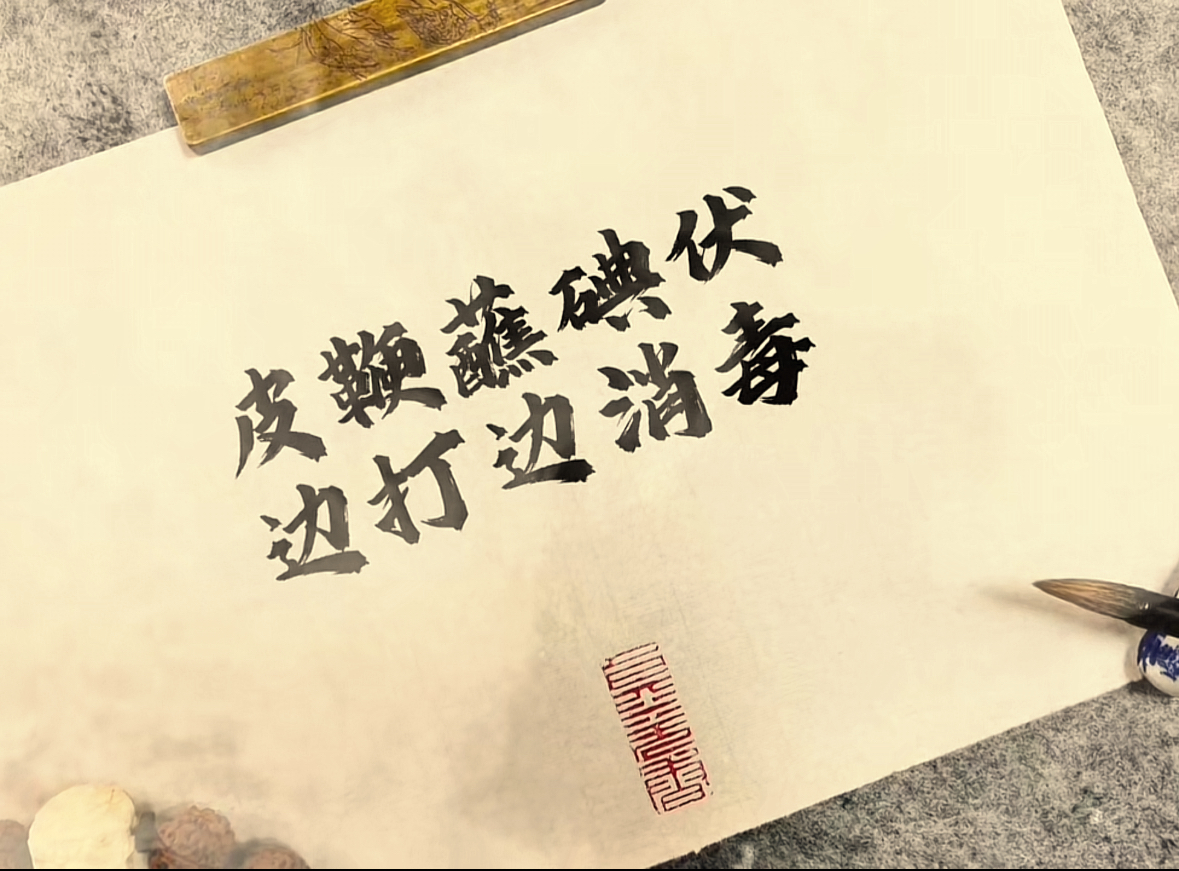 皮鞭蘸碘伏
边打边消毒